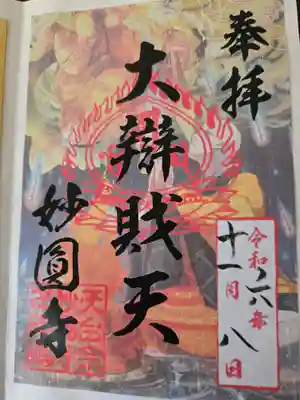 奉拝
令和六年
十一月八日
大辯財天
妙圓寺
天台宗